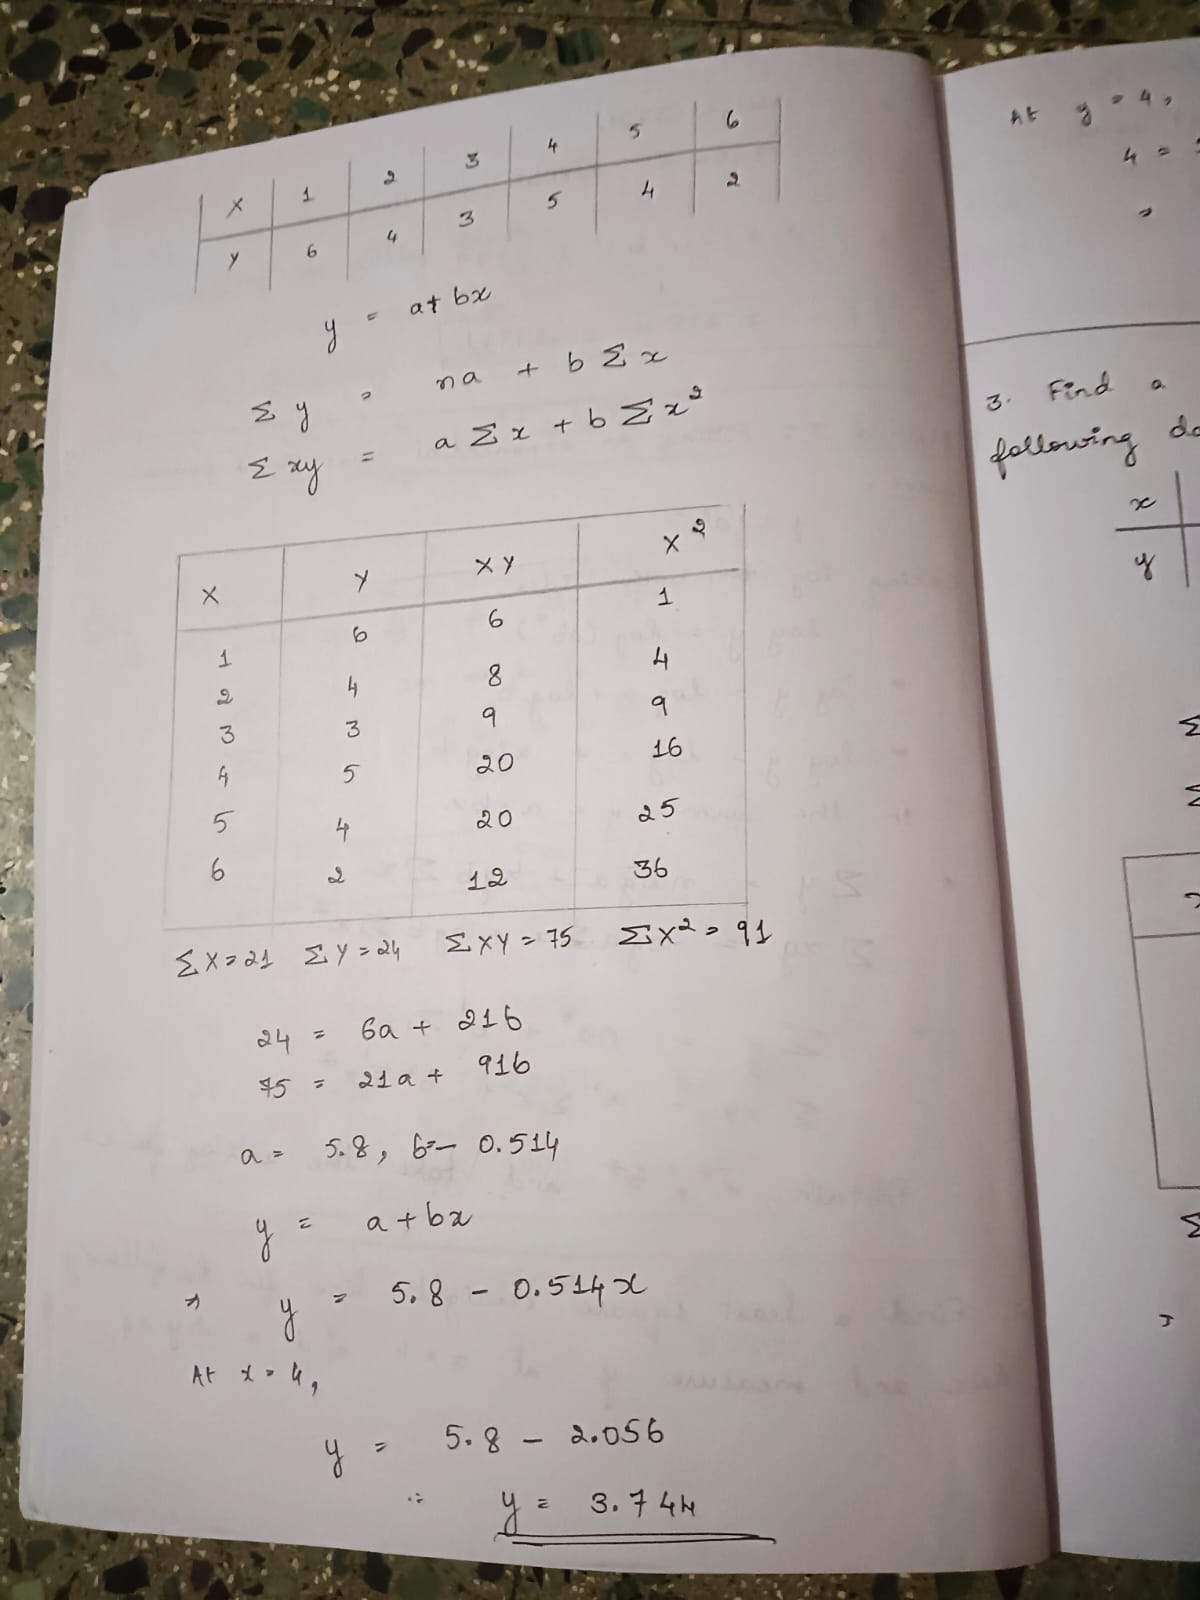 X 1 2 3 4 5 6
Y 6 4 3 5 4 2
y = a+ bx
Σ y = na + b Σ x
Σ xy = a Σ x + b Σ x²
X Y XY X²
1 6 6 1
2 4 8 4
3 3 9 9
4 5 20 16
5 4 20 25
6 2 12 36
ΣX=21 ΣY=24 ΣXY=75 ΣX²=91
24 = 6a + 21b
75 = 21a + 91b
a = 5.8, b=- 0.514
y = a + bx
⇒ y = 5.8 - 0.514x
At x = 4,
y = 5.8 - 2.056
∴ y = 3.744
At y = 4,
4 =
⇒
3. Find a
following
x
y
Σ
Σ
Σ